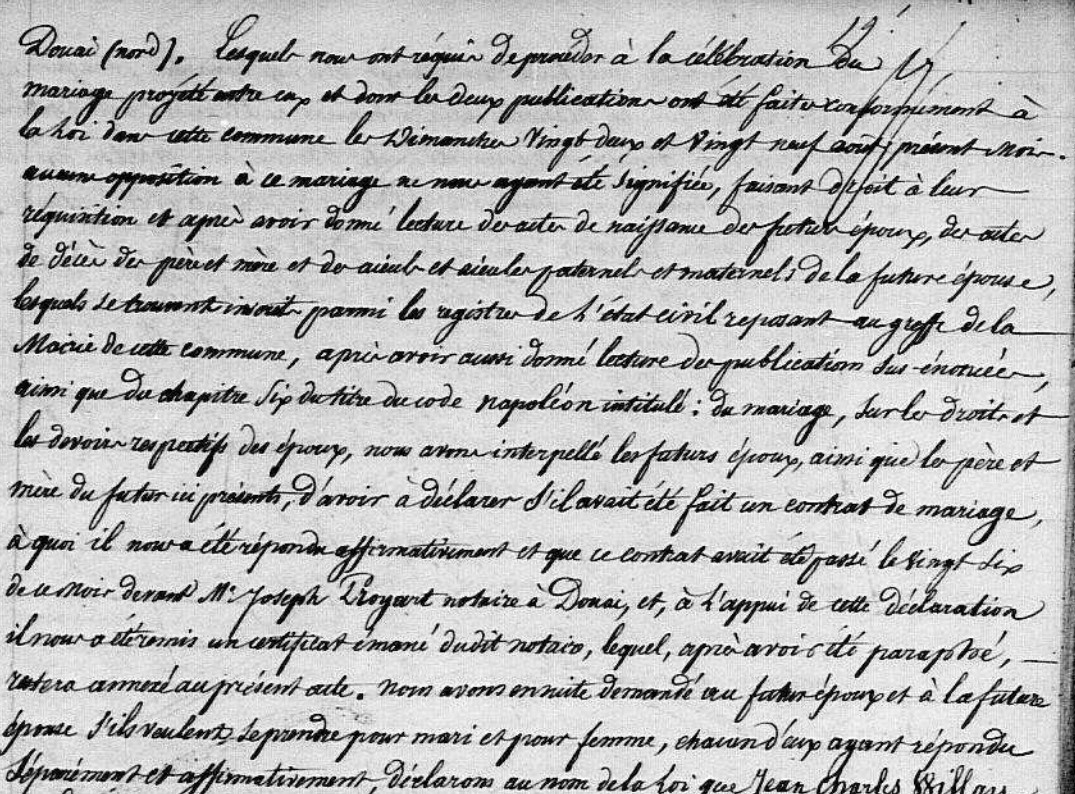 Douai (nord). Lesquels nous ont réquis de procéder à la célébration du
mariage projetté entre eux et dont les deux publications ont été faites conformément à
la Loi dans cette commune les Dimanches Vingt deux et Vingt neuf août présent Mois.
aucune opposition à ce mariage ne nous ayant été signifiée, faisant droit à leur
réquisition et après avoir donné lecture des actes de naissance des futurs époux, des actes
de décès des père et mère et des aieuls et aieules paternels et maternels de la future épouse,
lesquels se trouvent inscrits parmi les registres de l'état civil reposant au greffe de la
Mairie de cette commune, après avoir aussi donné lecture des publications sus-énoncées,
ainsi que du chapitre Six du titre du code napoléon intitulé : du mariage, sur les droits et
les devoirs respectifs des époux, nous avons interpellé les futurs époux, ainsi que les père et
mère du futur ici présents, d'avoir à déclarer s'il avait été fait un contrat de mariage,
à quoi il nous a été répondu affirmativement et que ce contrat avait été passé le Vingt Six
de ce Mois devant Mr. Joseph Proyart notaire à Douai, et, à l'appui de cette déclaration
il nous a été remis un certificat émané dudit notaire, lequel, après avoir été paraphé,
restera annexé au présent acte. nous avons ensuite demandé au futur époux et à la future
épouse s'ils veulent se prendre pour mari et pour femme, chacun d'eux ayant répondu
séparément et affirmativement, déclarons au nom de la Loi que Jean Charles